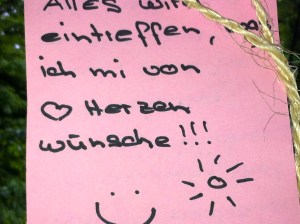 Alles wird
eintreffen,
ich mi von
♡ Herzen
wünsche!!!